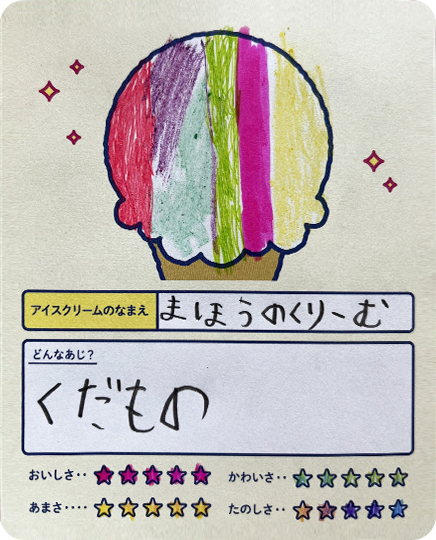 アイスクリームのなまえ まほうのくりーむ
どんなあじ？
くだもの
おいしさ‥ ☆☆☆☆☆ かわいさ‥ ☆☆☆☆☆
あまさ‥‥ ☆☆☆☆☆ たのしさ‥ ☆☆☆☆☆